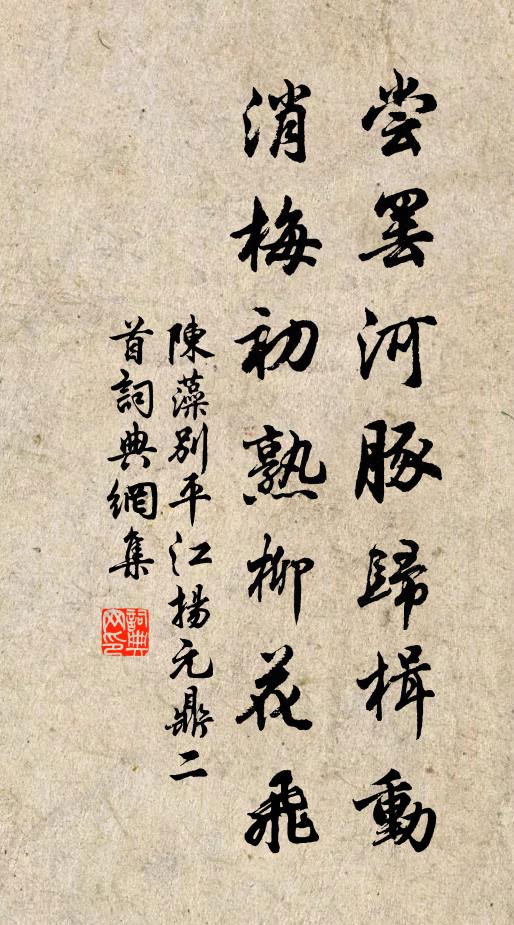 尝罢河豚歸楫動
消梅初熟柳花飛
陳藻别平江揚元鼎二
首詞典網集
詞典
网印